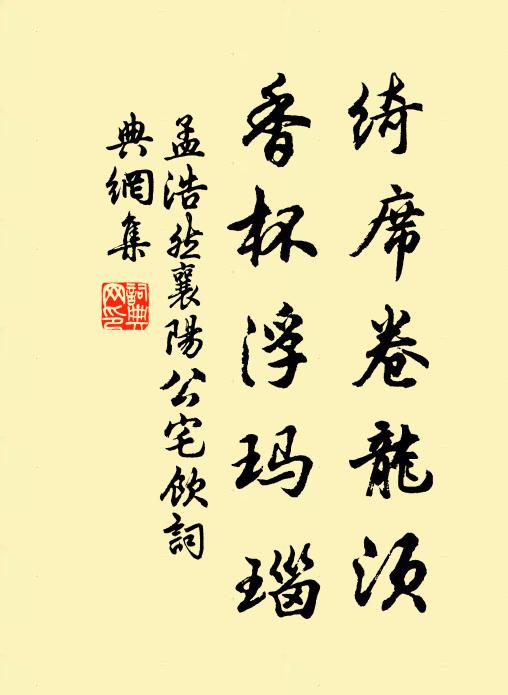 綺席卷龍須
香杯浮玛瑙
孟浩然襄陽公宅飲詞
典網集
詞典网印